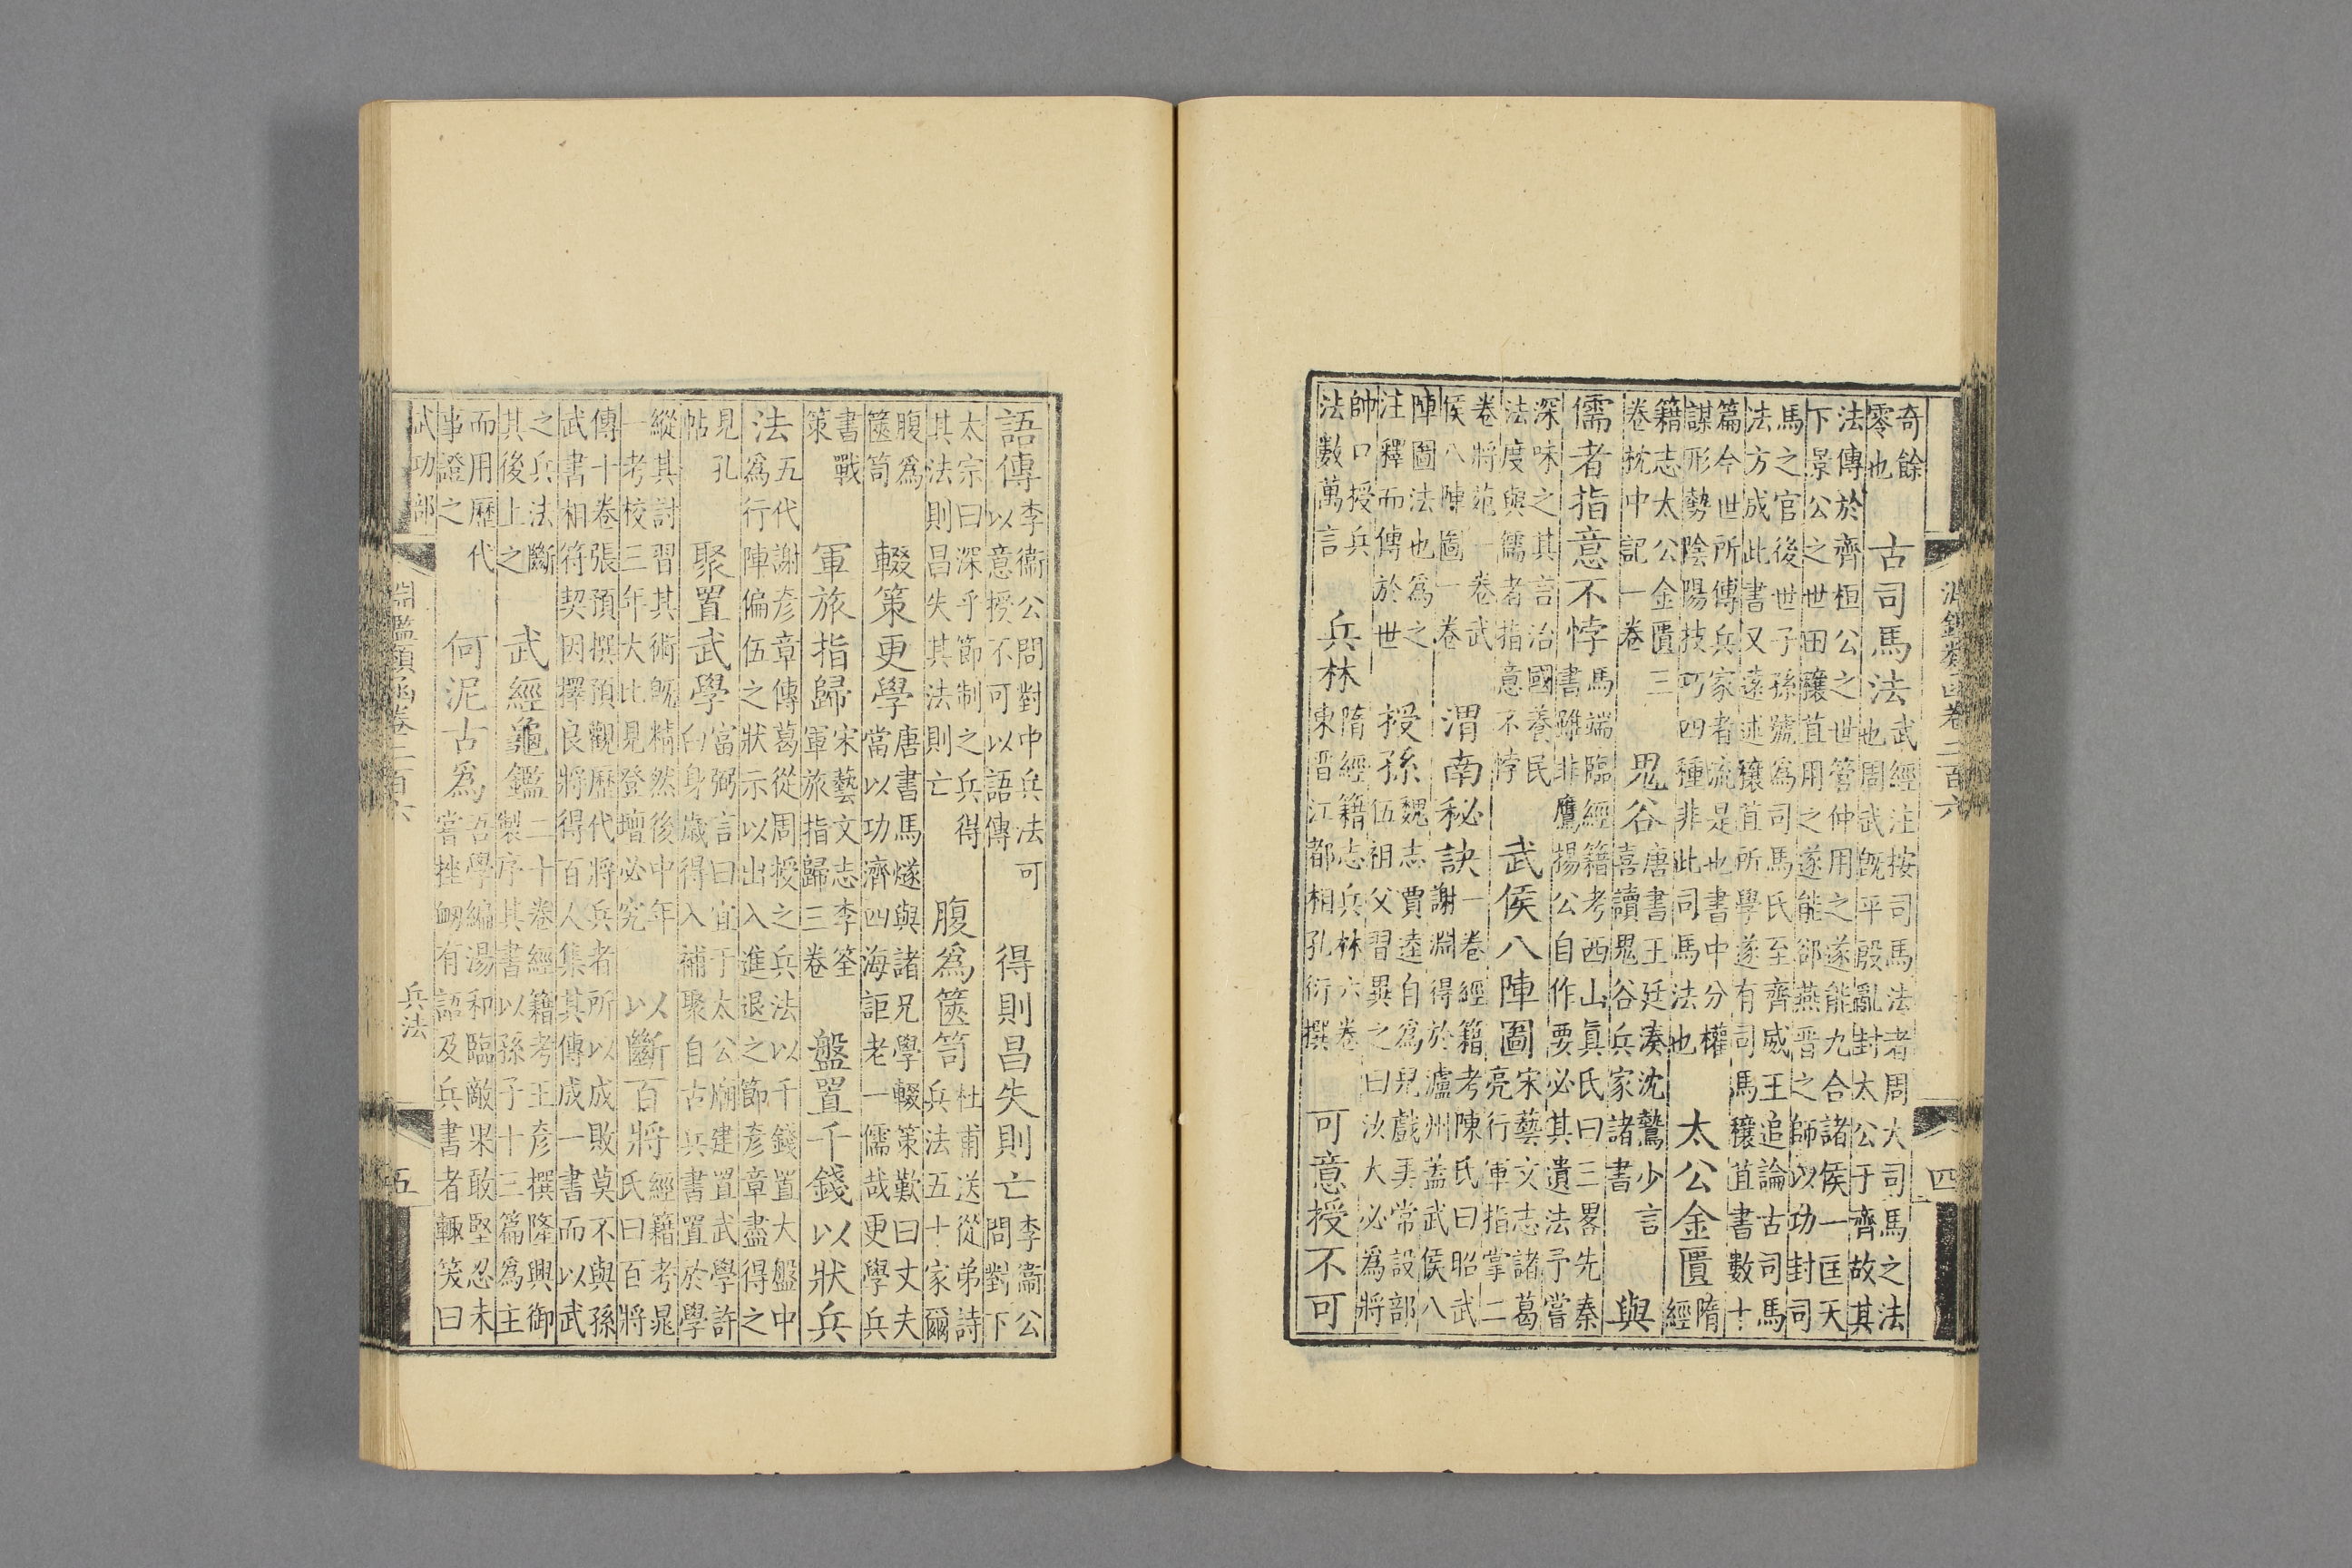 淵鑑類函卷二百六 四
奇餘
零也
古司馬法
武經注按司馬法者周大司馬之法
也周武既平殷亂封太公于齊故其
法傳於齊桓公之世管仲用之遂能九合諸侯一匡天
下景公之世田穰苴用之遂能郤燕晋之師以功封司
馬之官後世子孫號爲司馬氏至齊威王追論古司馬
法方成此書又遂述穰苴所學遂有司馬穰苴書數十
篇今世所傳兵家者流是也書中分權
謀形勢陰陽技巧四種非此司馬法也
太公金匱
隋
經
籍志太公金匱三
卷枕中記一卷
鬼谷
唐書王廷湊沈鷙少言
喜讀鬼谷兵家諸書
與
儒者指意不悖
馬端臨經籍考西山眞氏曰三畧先秦
書雖非鷹揚公自作要必其遺法予嘗
深味之其言治國養民
法度與儒者指意不悖
武侯八陣圖
宋藝文志諸葛
亮行軍指掌二
卷將苑一卷武
侯八陣圖一卷
渭南秘訣
一卷經籍考陳氏曰昭武
謝淵得於瀘州蓋武侯八
陣圖法也爲之
注釋而傳於世
授孫
魏志賈逵自爲兒戲弄常設部
伍祖父習異之曰汝大必爲將
帥口授兵
法數萬言
兵林
隋經籍志兵林六卷
東晋江都相孔衍撰
可意授不可
語傳
李衞公問對中兵法可
以意授不可以語傳
得則昌失則亡
李衞公
問對下
太宗曰深乎節制之兵得
其法則昌失其法則亡
腹爲篋笥
杜甫送從弟詩
兵法五十家爾
腹爲
篋笥
輟策更學
唐書馬燧與諸兄學輟策歎曰丈夫
當以功濟四海詎老一儒哉更學兵
書戰
策
軍旅指歸
宋藝文志李筌
軍旅指歸三卷
盤置千錢以狀兵
法
五代謝彦章傳葛從周授之兵法以千錢置大盤中
爲行陣偏伍之狀示以出入進退之節彦章盡得之
見孔
帖
聚置武學
富弼言曰宜于太公廟建置武學許
白身歲得入補聚自古兵書置於學
縱其討習其術旣精然後中年
一考校三年大比見登壇必究
以斷百將
經籍考晁
氏曰百將
傳十卷張預撰預觀歷代將兵者所以成敗莫不與孫
武書相符契因擇良將得百人集其傳成一書而以武
之兵法斷
其後上之
武經龜鑑
二十卷經籍考王彦撰隆興御
製序其書以孫子十三篇爲主
而用歷代
事證之
何泥古爲
吾學編湯和臨敵果敢堅忍未
嘗挫衂有語及兵書者輙笑曰
武功部 淵鑑類函卷二百六 兵法 五